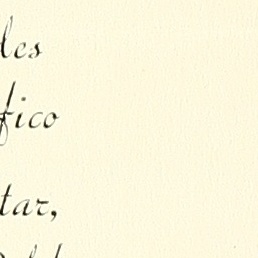 les
fico
tar,